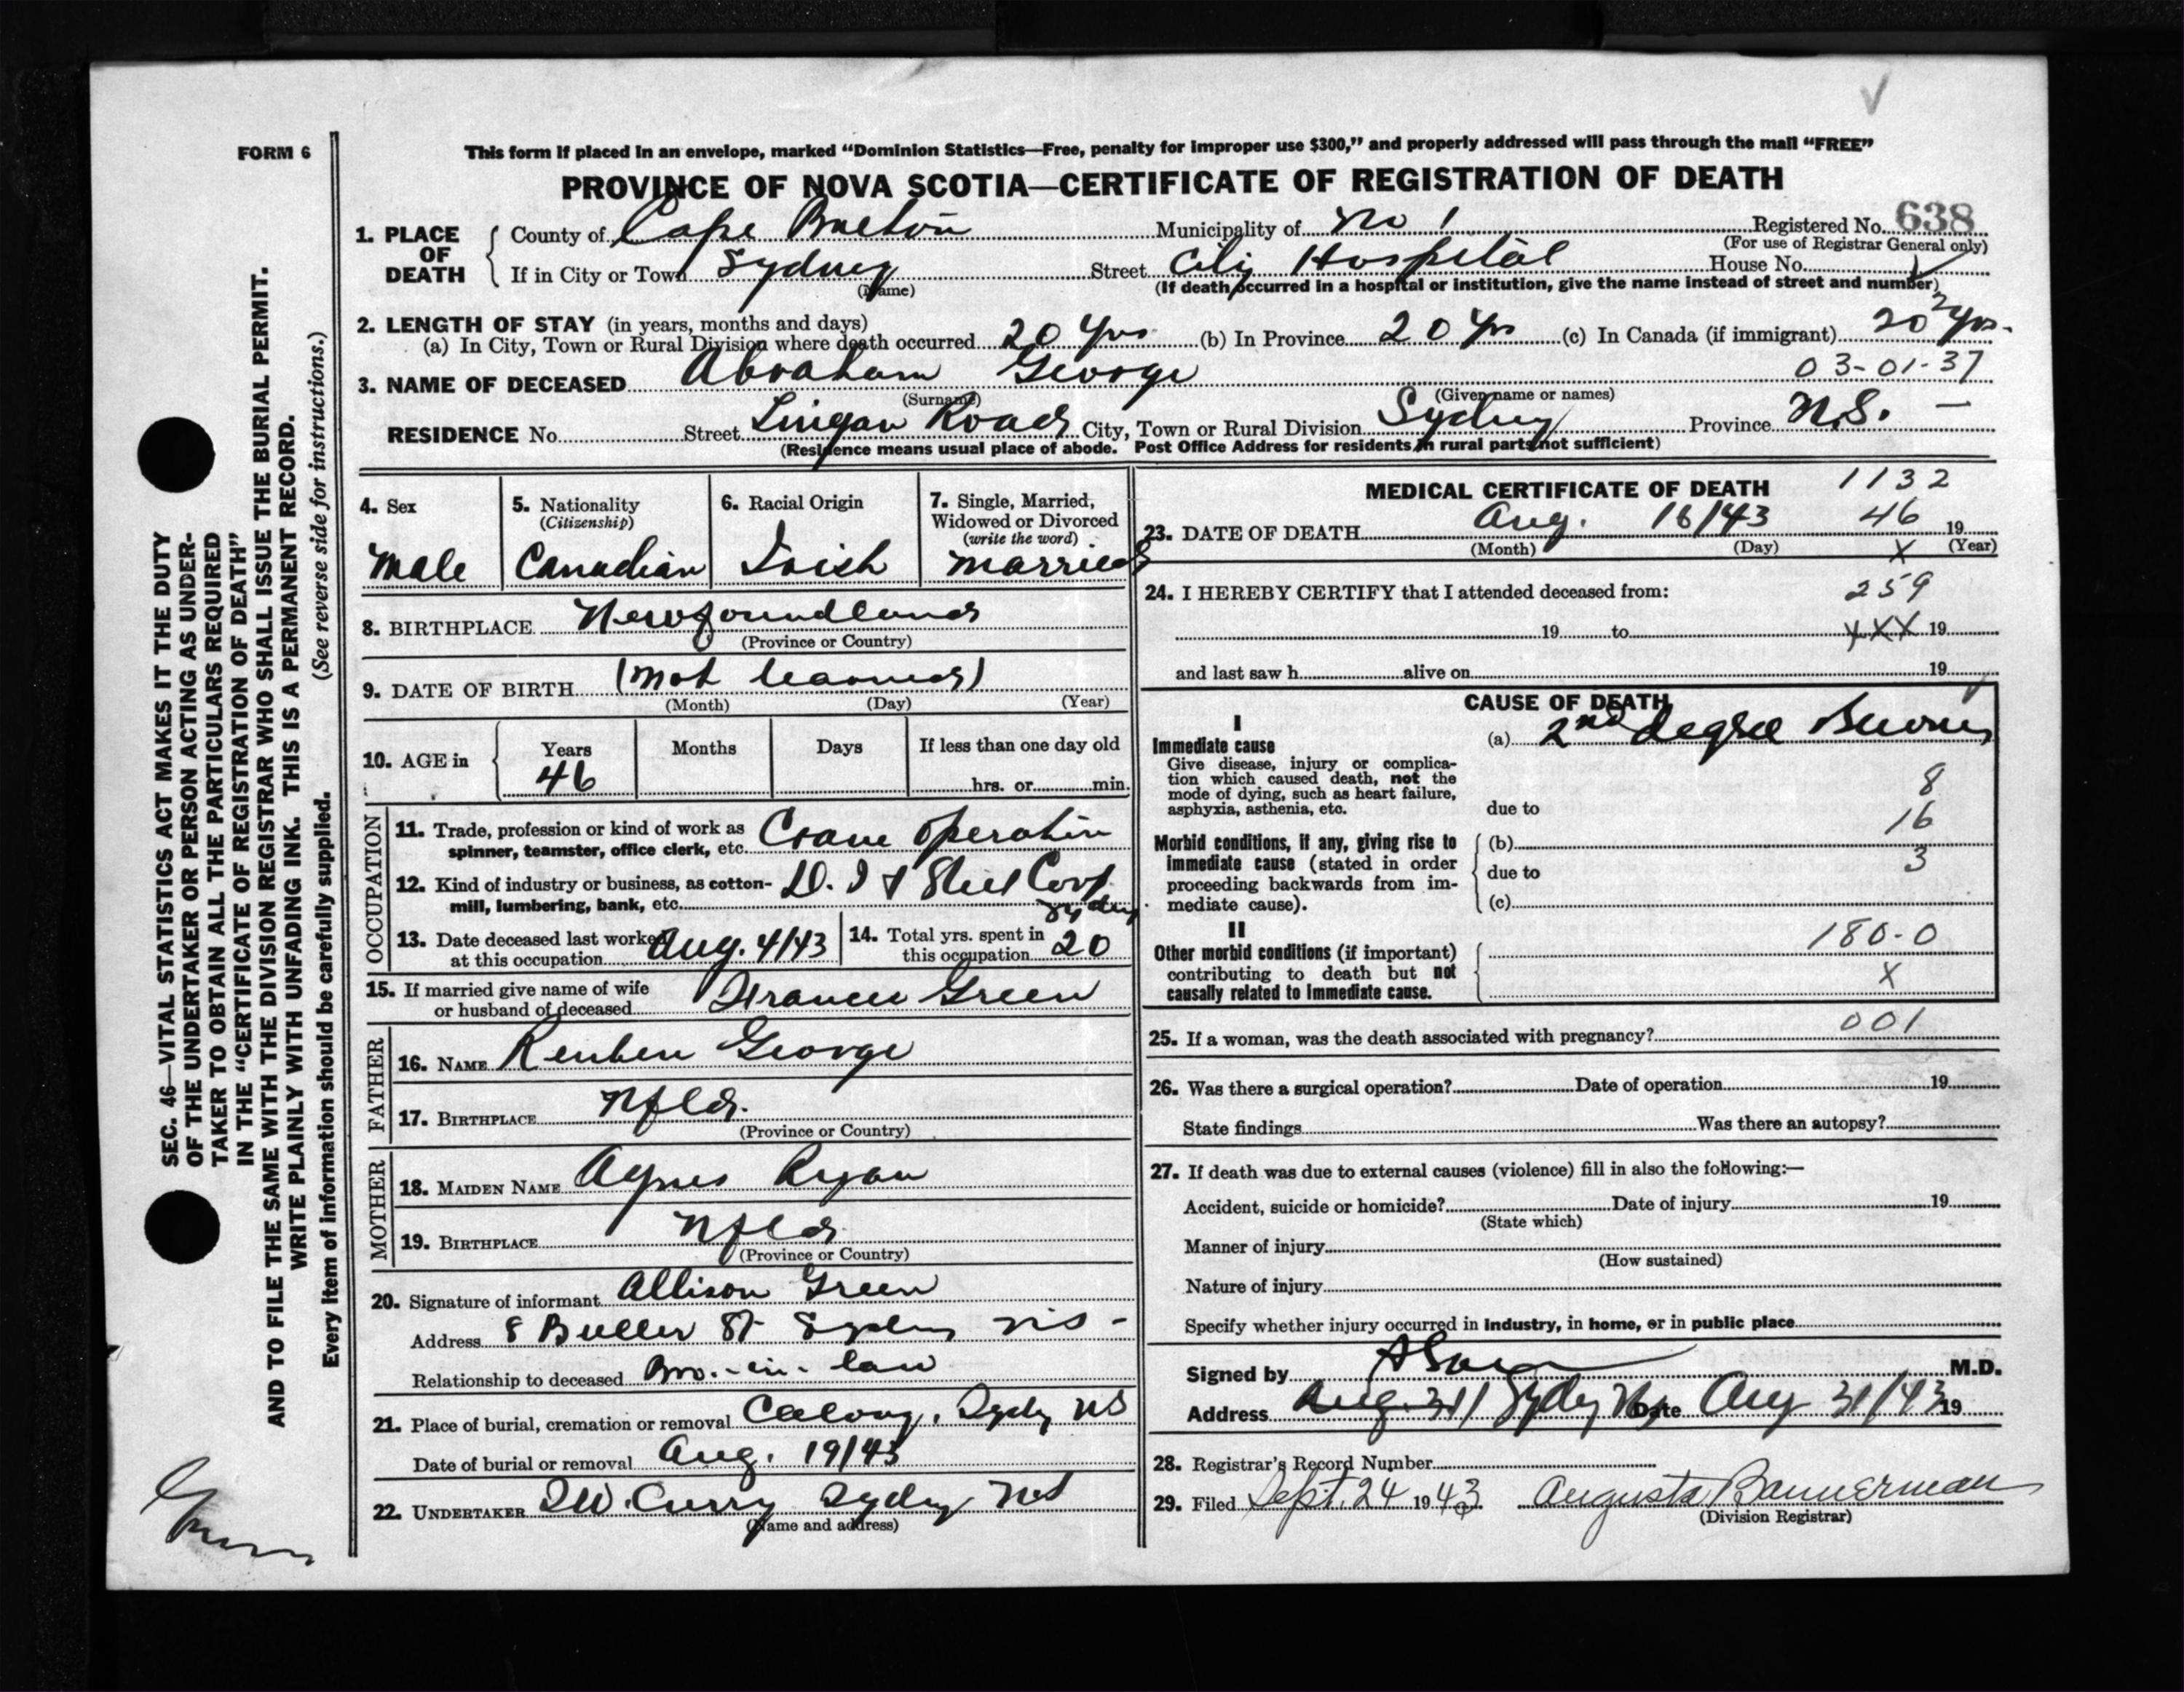 FORM 6
This form if placed in an envelope, marked “Dominion Statistics—Free, penalty for improper use $300,” and properly addressed will pass through the mail “FREE”
PROVINCE OF NOVA SCOTIA—CERTIFICATE OF REGISTRATION OF DEATH
1. PLACE OF DEATH
County of Cape Breton Municipality of No 1 Registered No. 638
(For use of Registrar General only)
If in City or Town Sydney Street City Hospital House No.
(Name) (If death occurred in a hospital or institution, give the name instead of street and number)
2. LENGTH OF STAY (in years, months and days)
(a) In City, Town or Rural Division where death occurred 20 Yrs (b) In Province 20 Yrs (c) In Canada (if immigrant) 20 Yrs. 2
3. NAME OF DECEASED Abraham George 03-01-37
(Surname) (Given name or names)
RESIDENCE No. Street Lingan Road City, Town or Rural Division Sydney Province N.S. —
(Residence means usual place of abode. Post Office Address for residents in rural parts not sufficient)
4. Sex
Male
5. Nationality
(Citizenship)
Canadian
6. Racial Origin
Irish
7. Single, Married,
Widowed or Divorced
(write the word)
Married
8. BIRTHPLACE Newfoundland
(Province or Country)
9. DATE OF BIRTH (Not learned)
(Month) (Day) (Year)
10. AGE in
Years Months Days If less than one day old
46 hrs. or min.
OCCUPATION
11. Trade, profession or kind of work as
spinner, teamster, office clerk, etc. Crane operator
12. Kind of industry or business, as cotton-
mill, lumbering, bank, etc. D. I & Steel Corp
Sydney
13. Date deceased last worked
at this occupation Aug. 4/43
14. Total yrs. spent in
this occupation 20
15. If married give name of wife
or husband of deceased Frances Green
FATHER
16. NAME Reuben George
17. BIRTHPLACE Nfld.
(Province or Country)
MOTHER
18. MAIDEN NAME Agnes Ryan
19. BIRTHPLACE Nfld
(Province or Country)
20. Signature of informant Allison Green
Address 8 St Sydney NS -
Relationship to deceased Bro.-in-law
21. Place of burial, cremation or removal Sydy NS
Date of burial or removal Aug. 19/43
22. UNDERTAKER Curry Sydney NS
(Name and address)
MEDICAL CERTIFICATE OF DEATH 1132
23. DATE OF DEATH Aug. 16/43 46 19
(Month) (Day) X (Year)
24. I HEREBY CERTIFY that I attended deceased from: 259
19 to XXX 19
and last saw h alive on 19
CAUSE OF DEATH
I
Immediate cause
Give disease, injury or complica-
tion which caused death, not the
mode of dying, such as heart failure,
asphyxia, asthenia, etc.
(a) 2nd degree Burns
8
due to
16
Morbid conditions, if any, giving rise to
immediate cause (stated in order
proceeding backwards from im-
mediate cause).
(b)
due to 3
(c)
II
Other morbid conditions (if important)
contributing to death but not
causally related to immediate cause.
180-0
X
25. If a woman, was the death associated with pregnancy? 001
26. Was there a surgical operation? Date of operation 19
State findings Was there an autopsy?
27. If death was due to external causes (violence) fill in also the following:—
Accident, suicide or homicide? Date of injury 19
(State which)
Manner of injury
(How sustained)
Nature of injury
Specify whether injury occurred in industry, in home, or in public place
Signed by M.D.
Address Aug 31/ Sydney Date Aug 31/43 19
28. Registrar's Record Number
29. Filed Sept. 24 1943 Augusta Bannerman
(Division Registrar)
SEC. 46—VITAL STATISTICS ACT MAKES IT THE DUTY
OF THE UNDERTAKER OR PERSON ACTING AS UNDER-
TAKER TO OBTAIN ALL THE PARTICULARS REQUIRED
IN THE “CERTIFICATE OF REGISTRATION OF DEATH”
AND TO FILE THE SAME WITH THE DIVISION REGISTRAR WHO SHALL ISSUE THE BURIAL PERMIT.
WRITE PLAINLY WITH UNFADING INK. THIS IS A PERMANENT RECORD.
Every item of information should be carefully supplied. (See reverse side for instructions.)